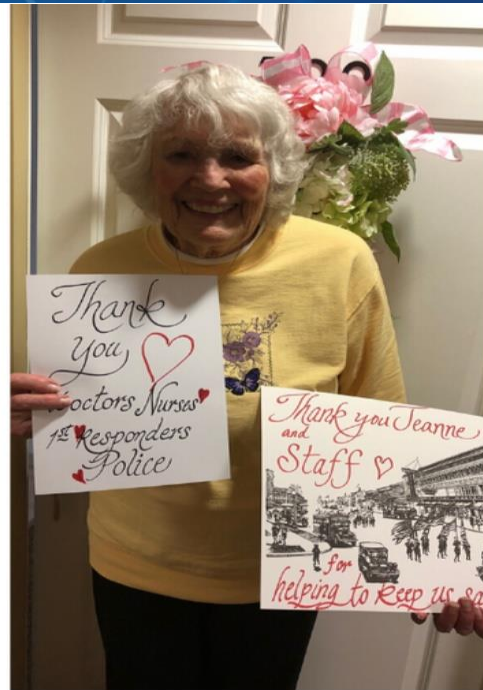 Thank
you
Doctors Nurses
1st Responders
Police
Thank you Jeanne
and
Staff
for
helping to keep us